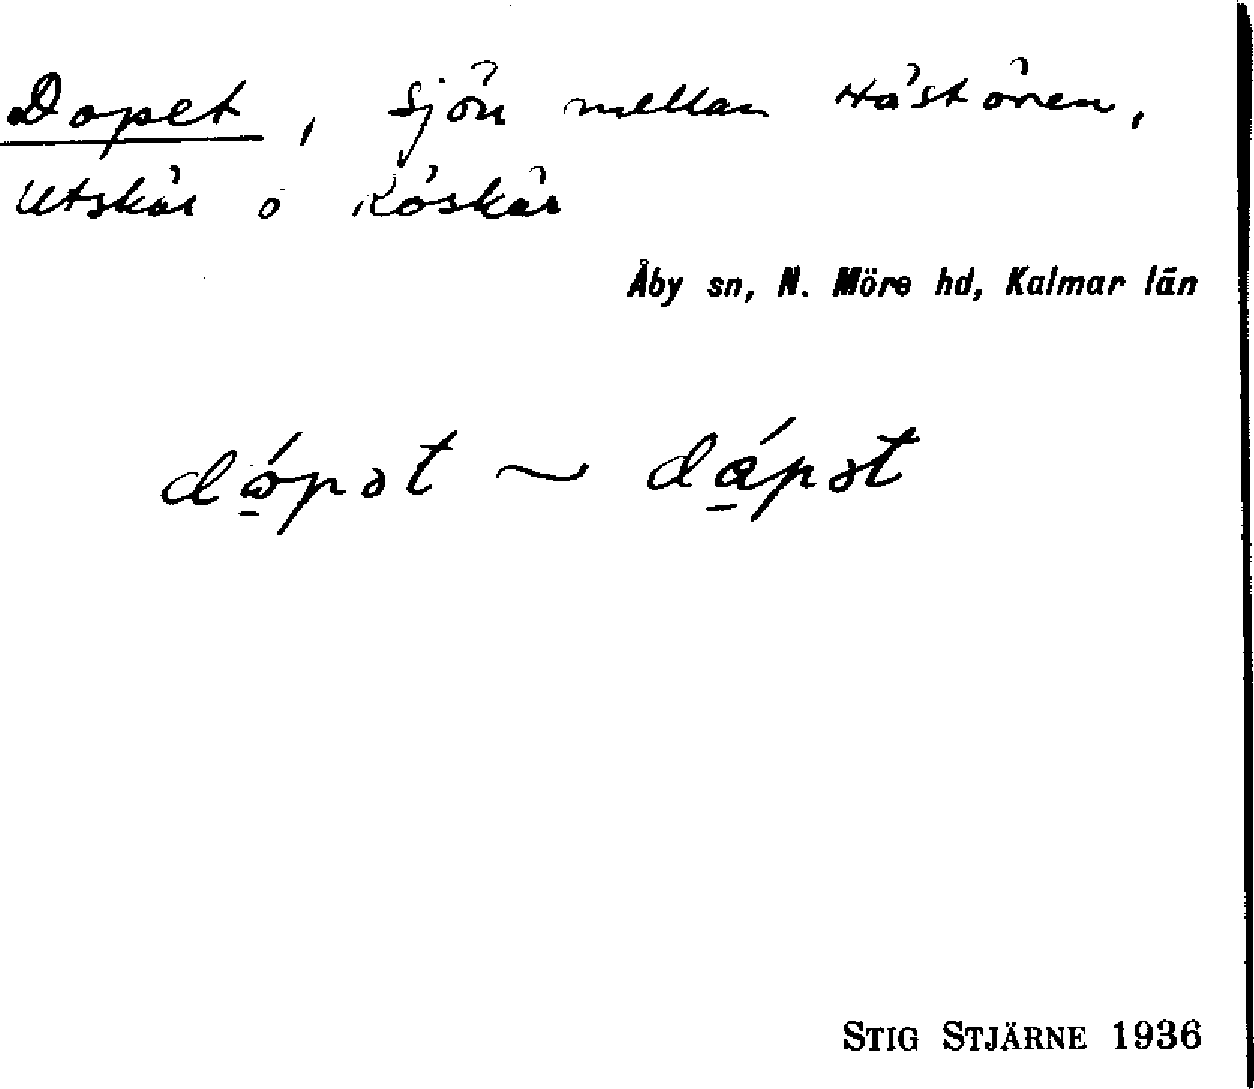 Dopet, sjön mellan Hästören,
Utskär o Röskär
Åby sn, N. Möre hd, Kalmar län
STIG STJÄRNE 1936